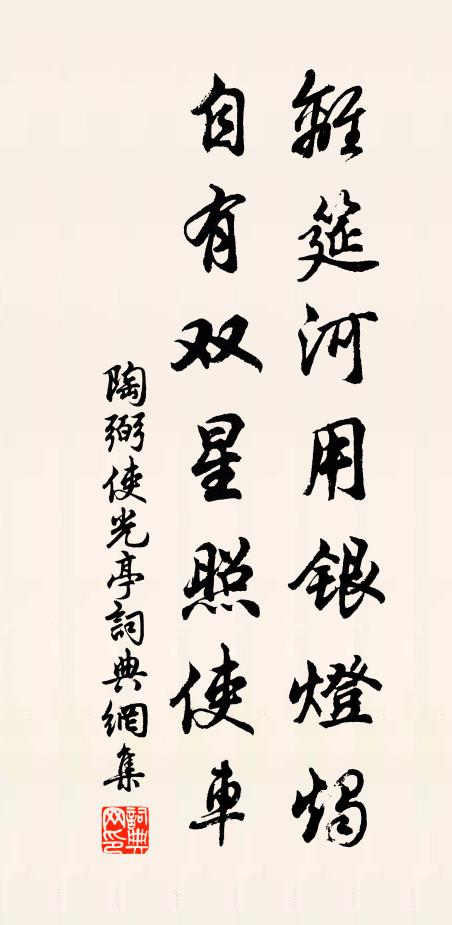 離筵河用銀燈燭
自有双星照使車
陶弼使光亭詞典網集
詞典網印